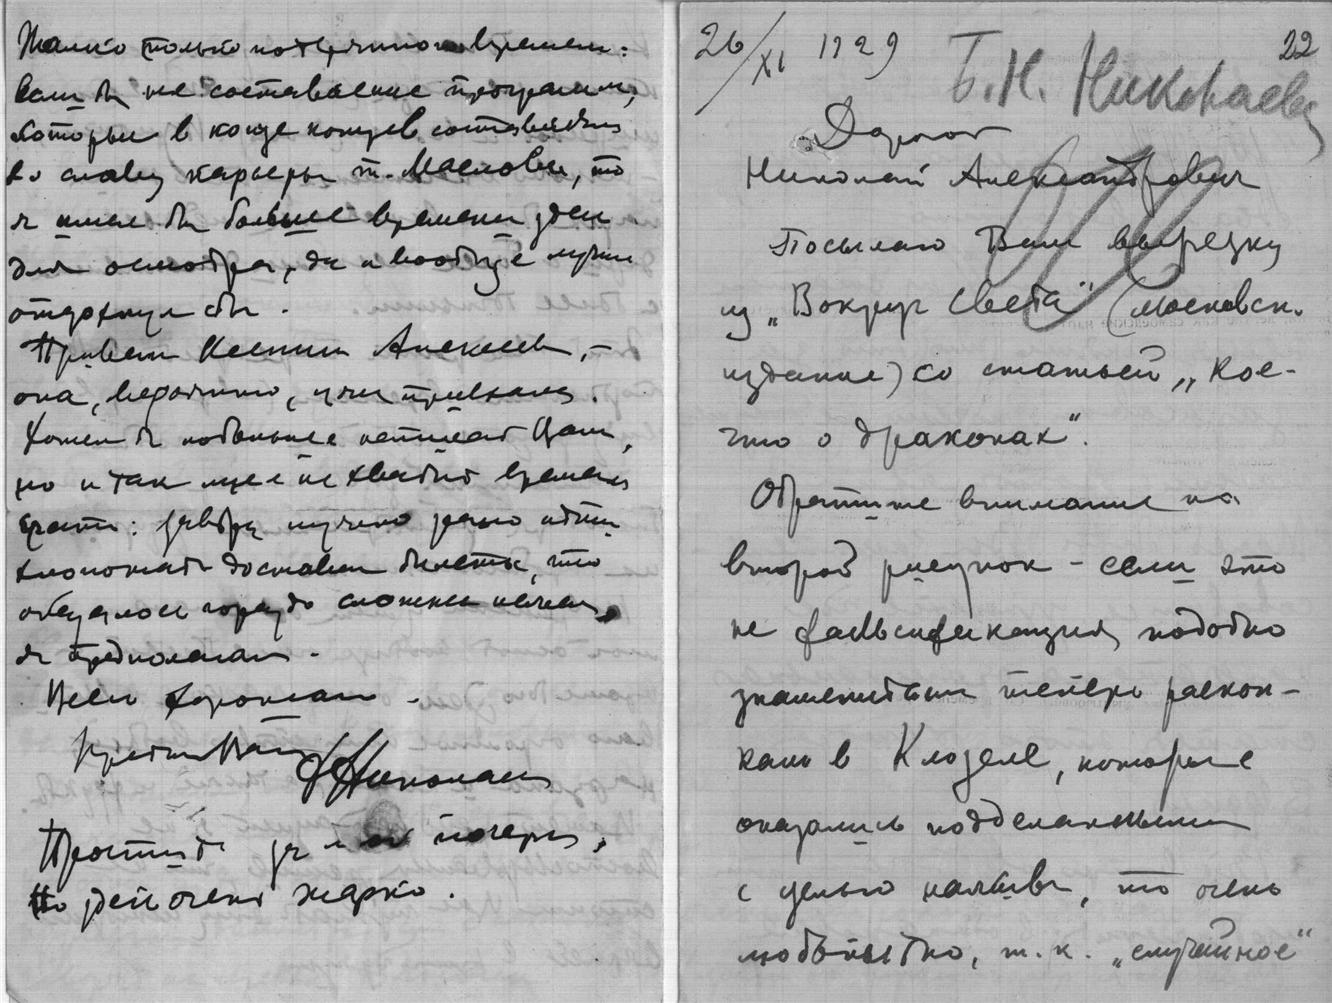 Жалко только потерянного времени:
Если бы не составление программ,
которые в конце концов составлялись
во славу карьеры т. Маслова, то
я имел бы больше времени здесь
для осмотра, да и вообще лучше
отдохнул бы.
Привет Ксении Алексеев,–
она, вероятно, уже приехала.
Хотел бы побольше написать Вам,
но и так уже не хватит времени
спать: завтра нужно рано идти
хлопотать доставать билеты, что
оказалось гораздо сложнее нежели
я предполагал.
Всего хорошего.
Преданный Вам БНиколаев
Простите за мой почерк,
но здесь очень жарко.
26/XI 1929
Б. Н. Николаев
22
Дорогой
Николай Александрович
Посылаю Вам вырезку
из „Вокруг Света" (московск.
издание) со статьей „Кое-
что о драконах".
Обратите внимание на
второй рисунок - если это
не фальсификация, подобно
знаменитым теперь раскоп-
кам в Клозеле, которые
оказались подделанными
с целью наживы, то очень
любопытно, т. к. „случайное"